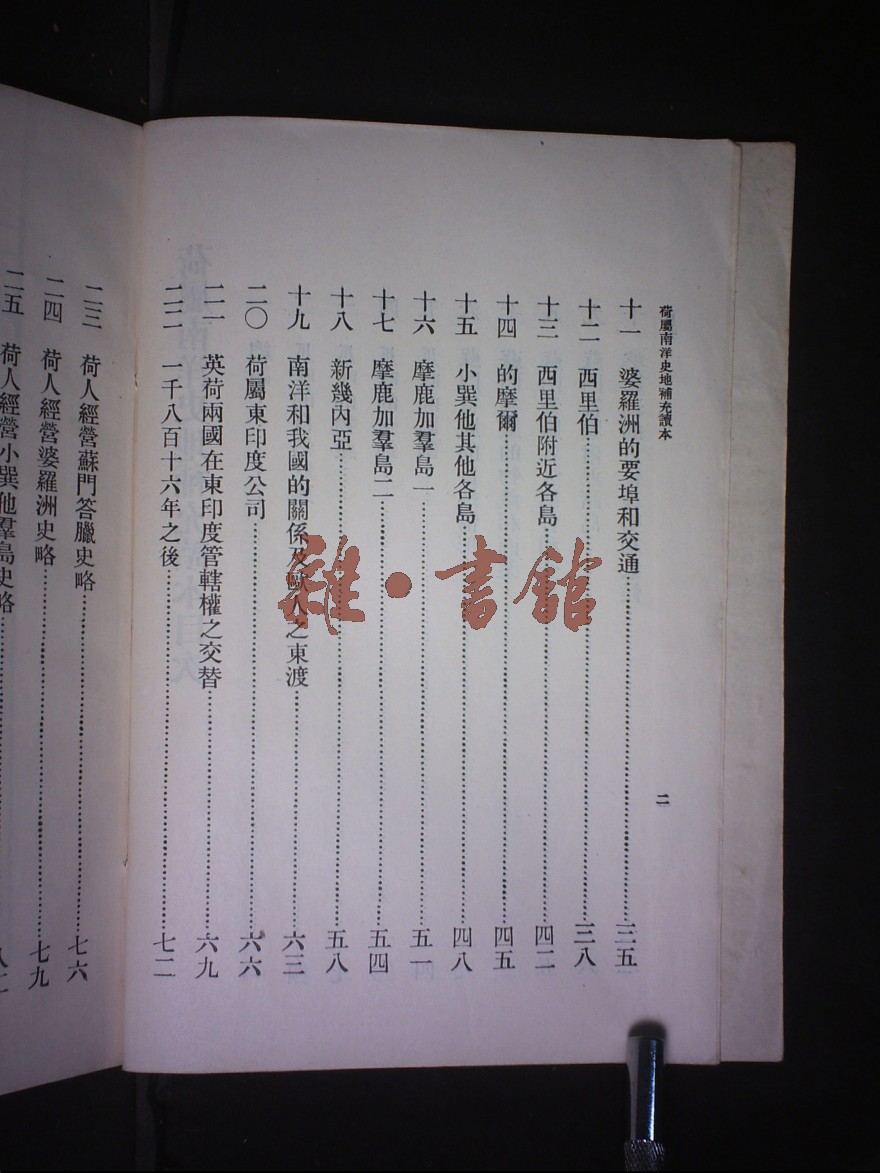 荷屬南洋史地補充讀本
二
十一 婆羅洲的要埠和交通……三五
十二 西里伯……三八
十三 西里伯附近各島……四二
十四 的摩爾……四五
十五 小巽他其他各島……四八
十六 摩鹿加羣島一……五一
十七 摩鹿加羣島二……五四
十八 新幾內亞……五八
十九 南洋和我國的關係及歐人之東渡……六三
二〇 荷屬東印度公司……六六
二一 英荷兩國在東印度管轄權之交替……六九
二二 一千八百十六年之後……七二
二三 荷人經營蘇門答臘史略……七六
二四 荷人經營婆羅洲史略……七九
二五 荷人經營小巽他羣島史略……八二
雜·書館